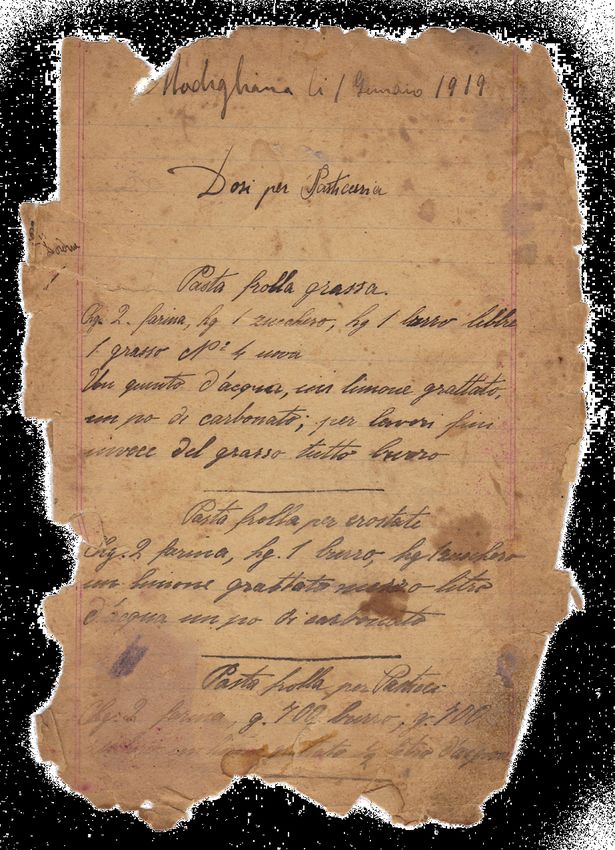 Modigliana li 1 Gennaio 1919
Dosi per Pasticceria
Pasta frolla grassa.
Kg. 2. farina, kg 1 zucchero, kg 1 burro libbre
1 grasso Nº 4 uova
Un quinto d'acqua, un limone grattato,
un po di carbonato; per lavori fini
invece del grasso tutto burro
Pasta frolla per crostate
Kg. 2 farina, kg. 1 burro, kg 1 zucchero
un limone grattato mezzo litro
d'acqua un po di carbonato
Pasta frolla per
Kg. 2 farina, g. 700 burro, g. 700
litro d'acqua